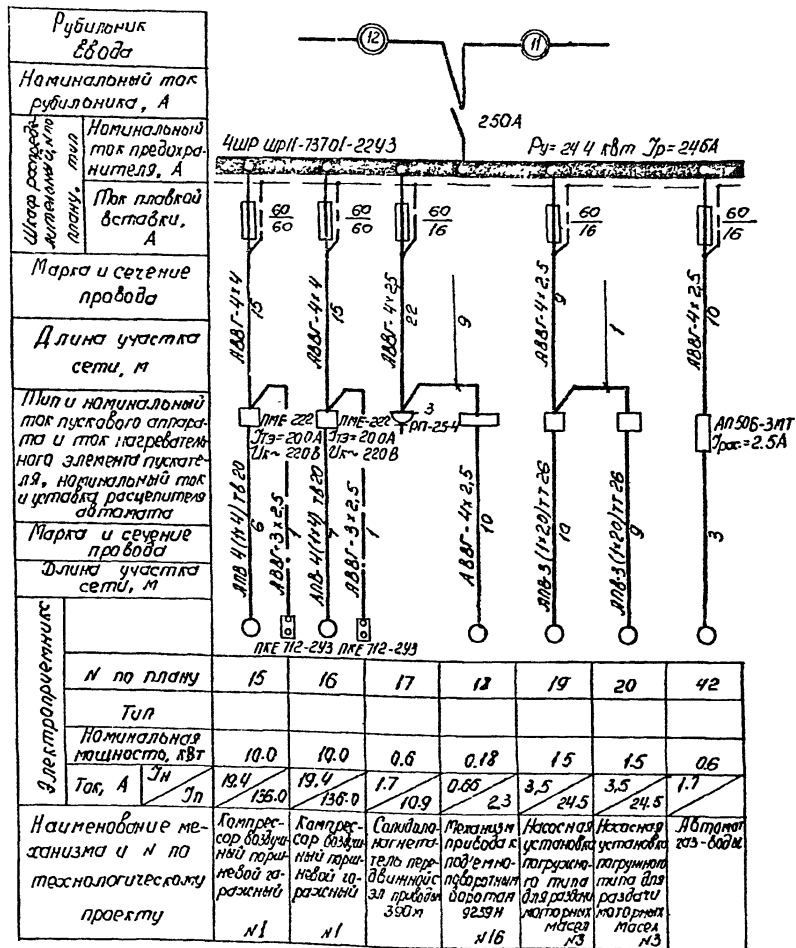 Рубильник
ввода
Номинальный ток
рубильника, А
Шкаф распреде-
лительный, N по
плану, тип
Номинальный
ток предохра-
нителя, А
Ток плавкой
вставки,
А
Марка и сечение
провода
Длина участка
сети, м
Тип и номинальный
ток пускового аппара-
та и ток нагреватель-
ного элемента пускате-
ля, номинальный ток
и уставка расцепителя
автомата
Марка и сечение
провода
Длина участка
сети, м
12
11
250А
4ШР ШР11-73701-22У3
Ру=24.4 кВт Iр=24.6А
60/60
60/60
60/16
60/16
60/16
АВВГ-4×4
15
АВВГ-4×4
15
АВВГ-4×2,5
22
9
АВВГ-4×2,5
9
1
АВВГ-4×2,5
10
ПМЕ-222
Iтэ=20.0А
Uк~ 220В
ПМЕ-222
Iтэ=20.0А
Uк~ 220В
3
РП-25-4
АП50Б-3МТ
Iрас.=2.5А
АПВ-4(1×4) тв20
6
АВВГ-3×2,5
1
АПВ-4(1×4) тв20
7
АВВГ-3×2,5
1
АВВГ-4×2,5
10
АПВ-3(1×20)тт26
10
АПВ-3(1×20)тт26
9
3
ПКЕ 712-2У3 ПКЕ 712-2У3
Электроприемник
N по плану 15 16 17 18 19 20 42
Тип
Номинальная
мощность, кВт 10.0 10.0 0.6 0.18 1.5 1.5 0.6
Ток, А Iн/Iп 19.4/136.0 19.4/136.0 1.7/10.9 0.66/2.3 3,5/24.5 3,5/24.5 1.7
Наименование ме-
ханизма и N по
технологическому
проекту
Компрес-
сор воздуш-
ный порш-
невой га-
ражный
N1
Компрес-
сор воздуш-
ный порш-
невой га-
ражный
N1
Солидоло-
нагнета-
тель пере-
движной с
эл приводом
390м
Механизм
привода к
подъемно-
поворотным
воротам
9259Н
N16
Насосная
установка
погружно-
го типа
для раздачи
моторных
масел
N3
Насосная
установка
погружного
типа для
раздачи
моторных
масел
N3
Автомат
газ-воды